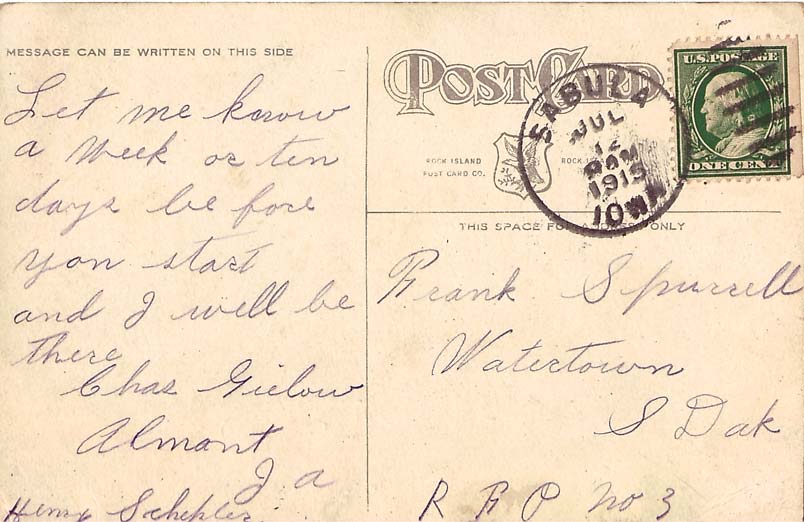 MESSAGE CAN BE WRITTEN ON THIS SIDE
Let me know
a week or ten
days be fore
you start
and I will be
there
Chas Gielow
Almont
I a
Henry
POST CARD
ROCK ISLAND
POST CARD CO.
ROCK
SABULA
JUL
12
1915
IOWA
U.S. POSTAGE
ONE CENT
THIS SPACE FOR ONLY
Frank Spurrell
Watertown
S Dak
R F D No 3